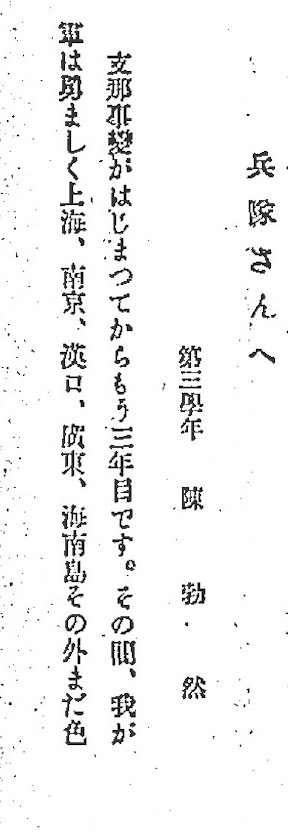 兵隊さんへ
第三學年 陳勃然
支那事變がはじまつてからもう三年目です。その間、我が
軍は勇ましく上海、南京、漢口、廣東、海南島その外まだ色